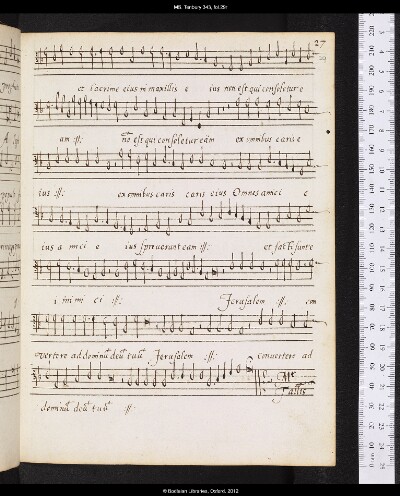 MS. Tenbury 343, fol.29r
27
et lacrime eius in maxillis e ius non est qui consoletur e
am :||: nō est qui consoletur eam ex omnibus caris e
ius :||: ex omnibus caris caris eius Omnes amici e
ius a mici e ius spreuerunt eam :||: et facti sunt e
i inimi ci :||: Jerusalem :||: con
vertere ad dominū deū tuū Jerusalem :||: convertere ad
Mr
Tallis
dominū deū tuū :||:
© Bodleian Libraries, Oxford, 2012